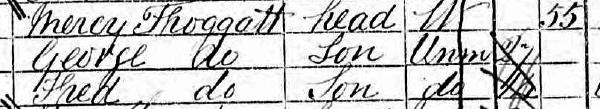 Mercy Throggatt head W 55
George do Son Unm 27
Fred do Son do